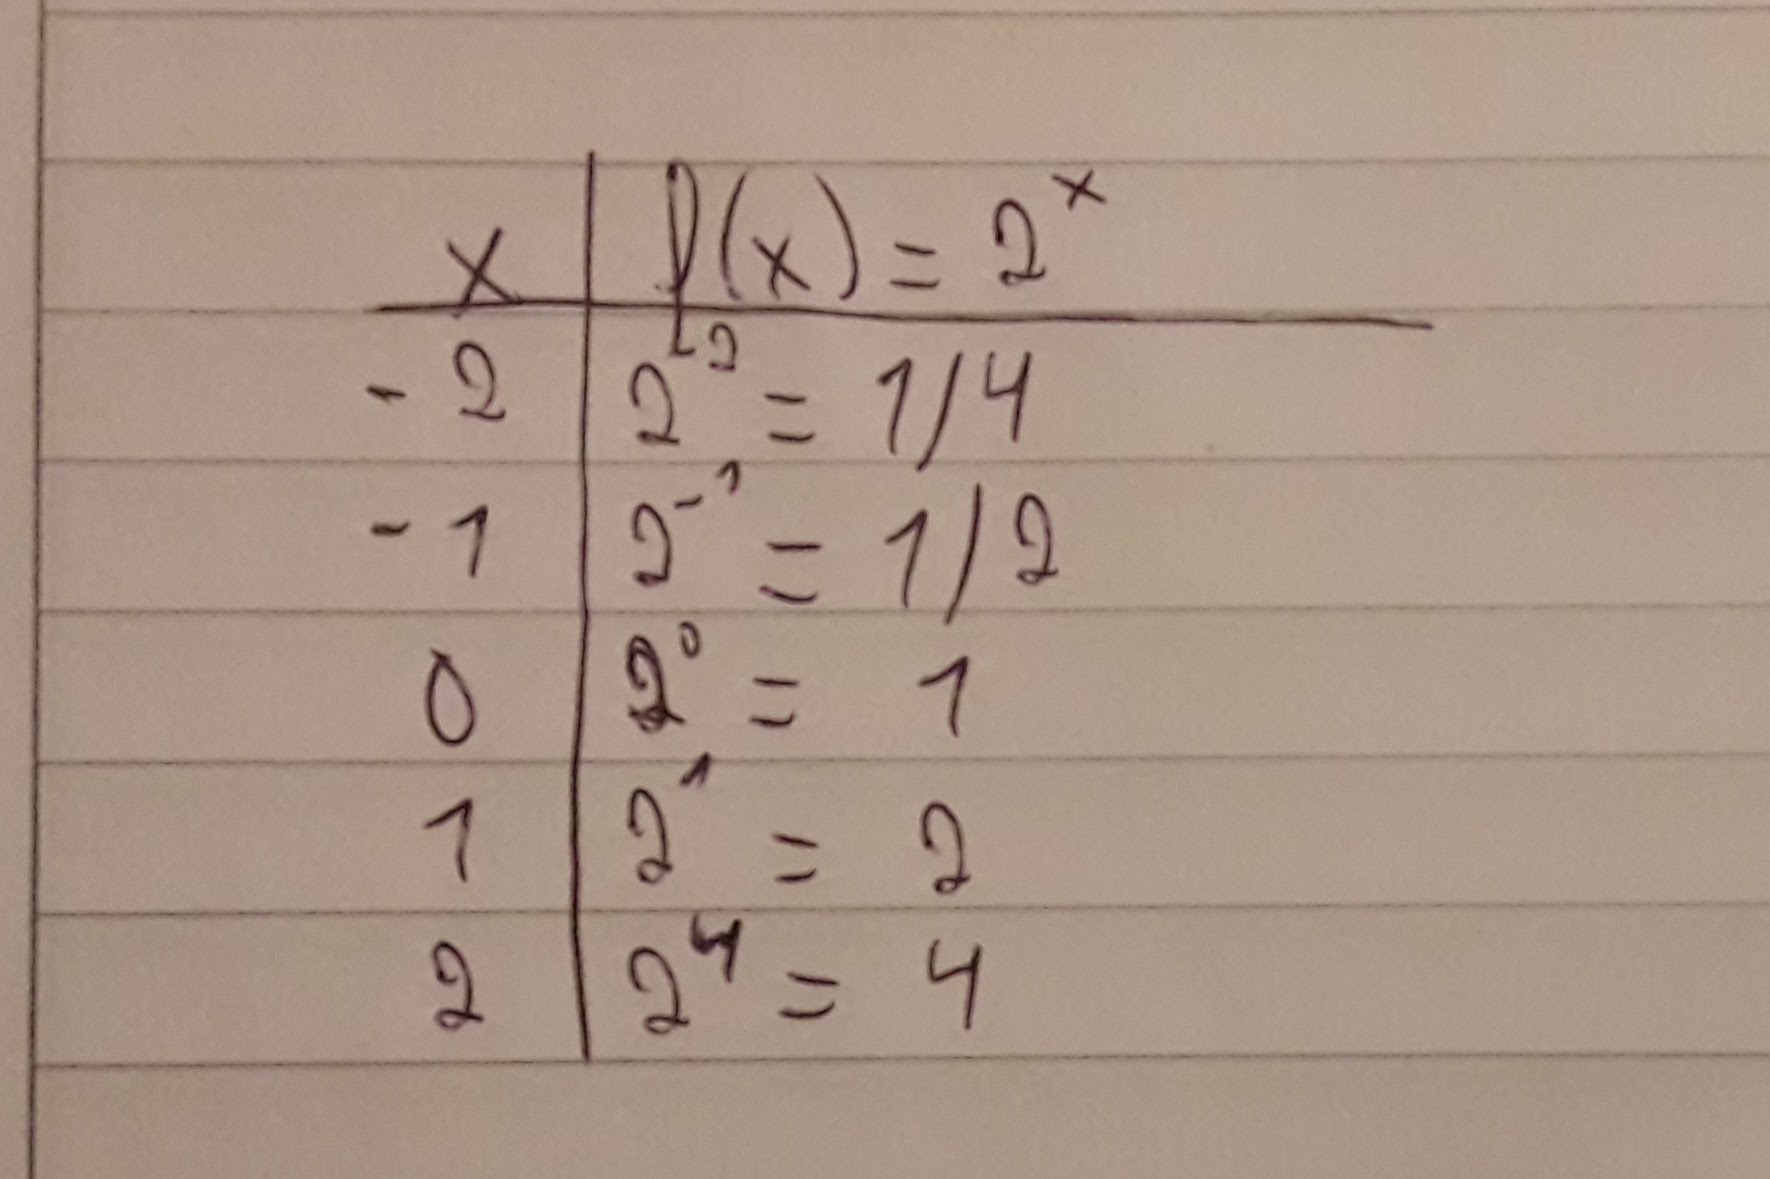 x | f(x) = 2^x
-2 | 2^-2 = 1/4
-1 | 2^-1 = 1/2
0 | 2^0 = 1
1 | 2^1 = 2
2 | 2^4 = 4